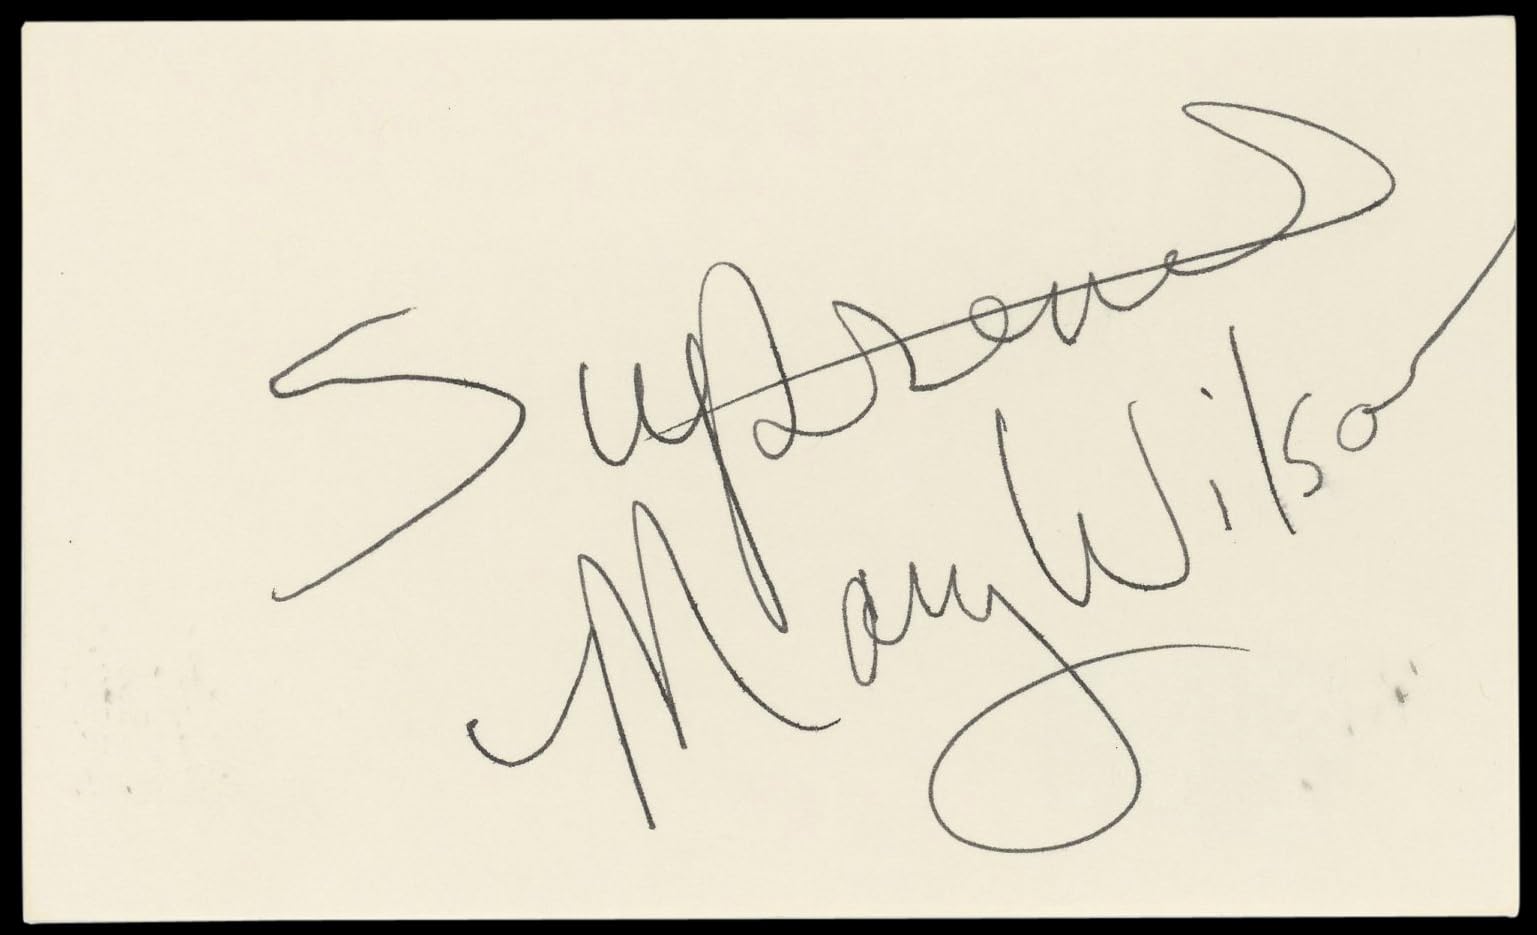 Supremes
Mary Wilson